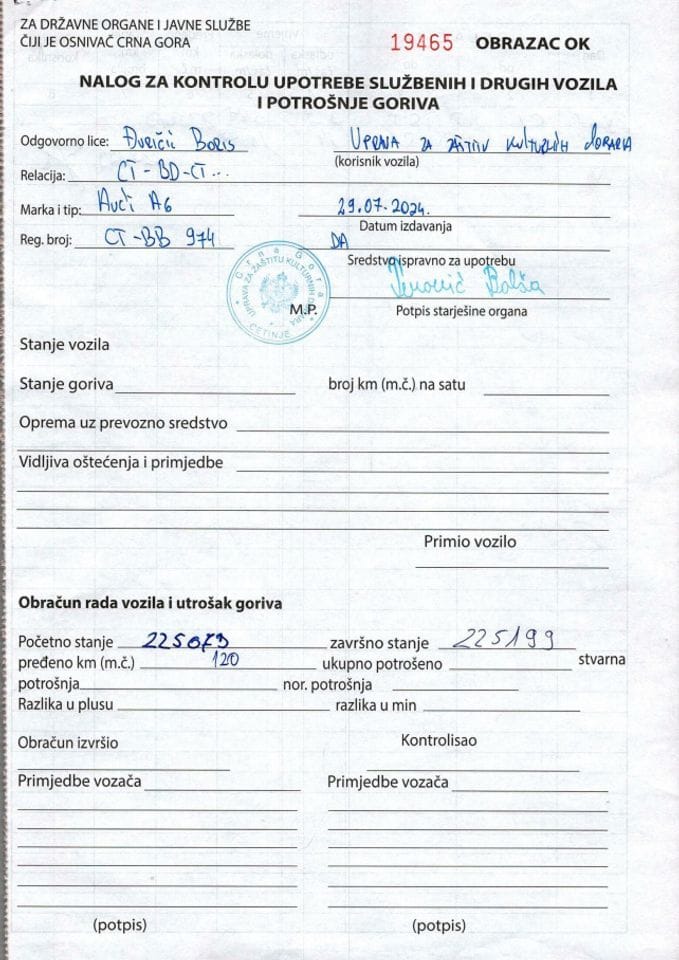 ZA DRŽAVNE ORGANE I JAVNE SLUŽBE
ČIJI JE OSNIVAČ CRNA GORA
19465 OBRAZAC OK
NALOG ZA KONTROLU UPOTREBE SLUŽBENIH I DRUGIH VOZILA
I POTROŠNJE GORIVA
Odgovorno lice: Đuričić Boris
UPRAVA ZA ZAŠTITU KULTURNIH DOBARA
(korisnik vozila)
Relacija: CT-BD-CT...
Marka i tip: Audi A6
29.07.2024.
Datum izdavanja
Reg. broj: CT-BB 974
DA
Sredstvo ispravno za upotrebu
Crna Gora
UPRAVA ZA ZAŠTITU KULTURNIH DOBARA
CETINJE
M.P.
Potpis starješine organa
Stanje vozila
Stanje goriva broj km (m.č.) na satu
Oprema uz prevozno sredstvo
Vidljiva oštećenja i primjedbe
Primio vozilo
Obračun rada vozila i utrošak goriva
Početno stanje 225079 završno stanje 225199
pređeno km (m.č.) 120 ukupno potrošeno stvarna
potrošnja nor. potrošnja
Razlika u plusu razlika u min
Obračun izvršio Kontrolisao
Primjedbe vozača Primjedbe vozača
(potpis) (potpis)